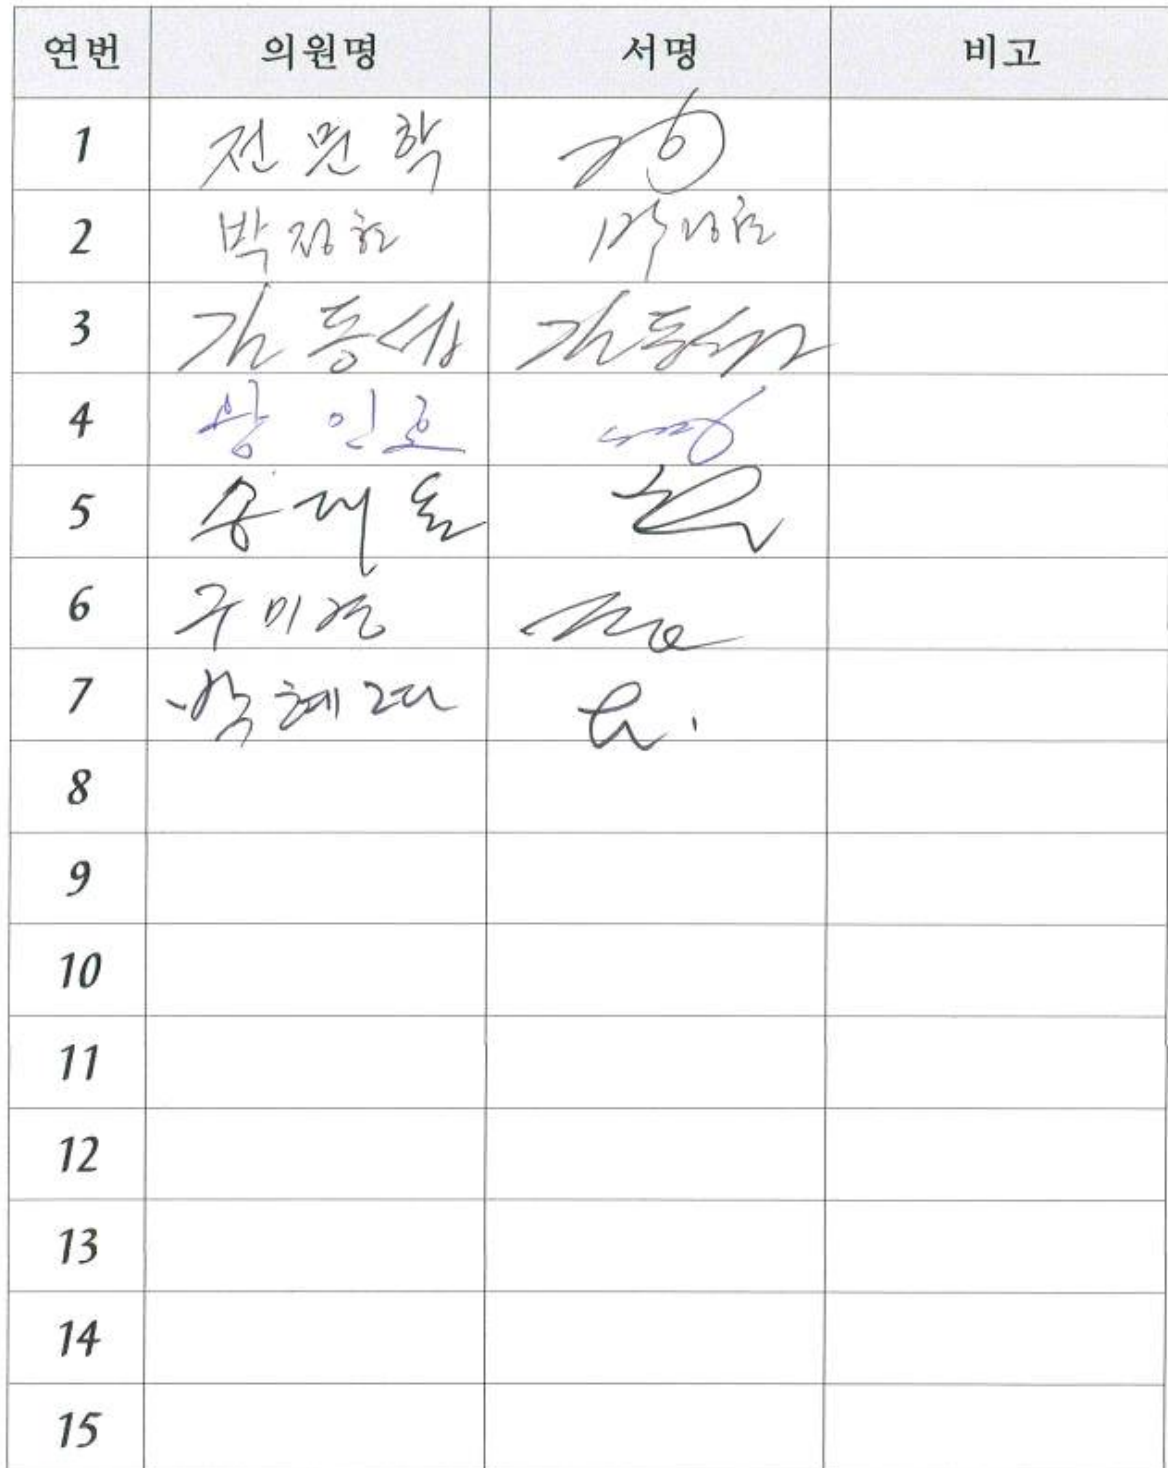 연번 의원명 서명 비고
1
2 박정현 박정현
3 김동섭 김동섭
4 황인호
5 송대윤
6 구미경
7 박혜련
8
9
10
11
12
13
14
15